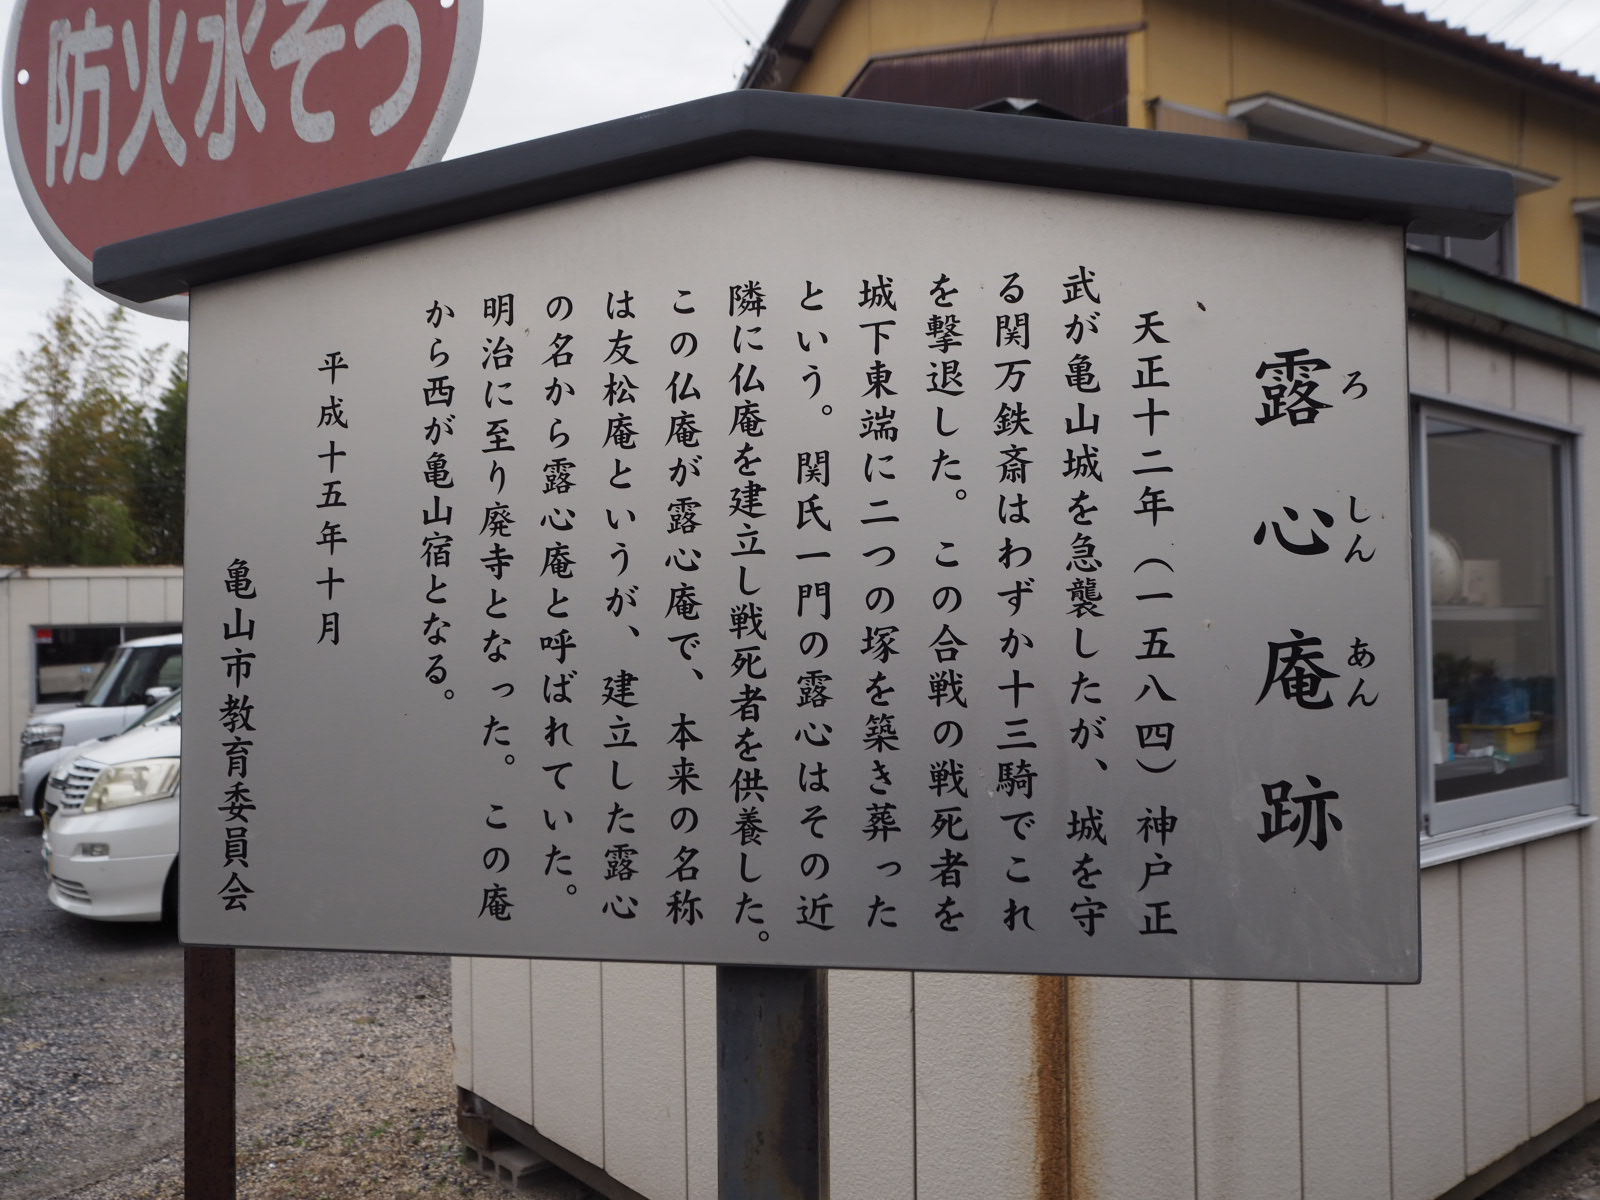 防火水そう
露心庵跡
ろしんあん
天正十二年（一五八四）神戸正
武が亀山城を急襲したが、城を守
る関万鉄斎はわずか十三騎でこれ
を撃退した。この合戦の戦死者を
城下東端に二つの塚を築き葬った
という。関氏一門の露心はその近
隣に仏庵を建立し戦死者を供養した。
この仏庵が露心庵で、本来の名称
は友松庵というが、建立した露心
の名から露心庵と呼ばれていた。
明治に至り廃寺となった。この庵
から西が亀山宿となる。
平成十五年十月
亀山市教育委員会